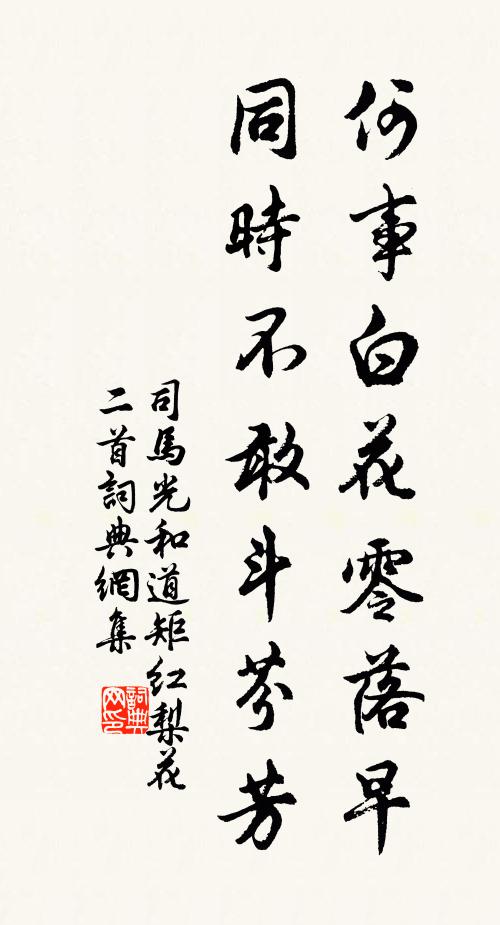 何事白花零落早
同時不敢斗芬芳
司馬光和道矩紅梨花
二首詞典網集
詞典网印